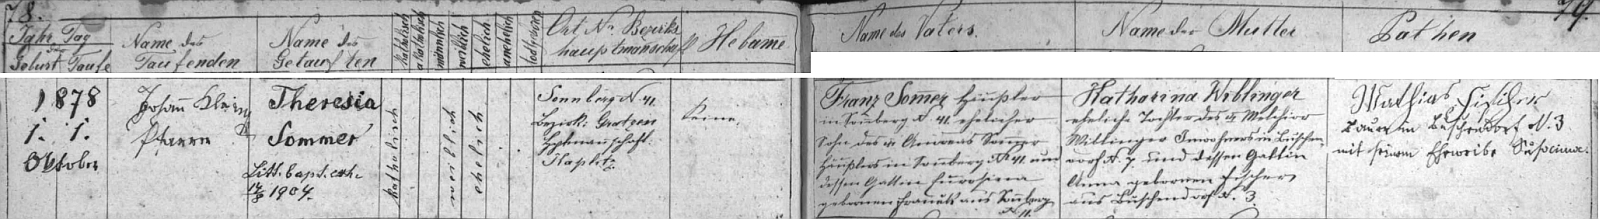 78.
79.
Jahr Tag
der
Geburt Taufe
Name des
Taufenden
Name des
Getauften
katholisch
akatholisch
männlich
weiblich
ehelich
unehelich
todtgeboren
Ort Nr. Bezirks
hauptmanschaft
Hebame
Name des Vaters
Name der Mutter
Pathen
1878
1. 1.
Oktober
Johann
Pfarrer
Theresia
Sommer
Litt. bapt. exh.
1904.
katholisch
weiblich
ehelich
Sonnberg N. 41.
Bezirk: Gratzen
Hauptmanschaft
Kaplitz
Keine
Franz Somer Häusler
in Sonnberg N. 41. ehelicher
Sohn des Andreas Sommer
Häuslers in Sonnberg N. 41 und
dessen Gattin Eufrosina
gebornen aus Sonnberg
N. 11.
Katharina Wiltinger
eheliche Tochter des Melchior
Wiltinger Inwohners in Buschen
dorf N. 7 und dessen Gattin
Anna gebornen Fischer
aus Buschendorf N. 3.
Mathias Fischer
Bauer in Buschendorf N. 3
mit seinem Eheweibe Susanna.